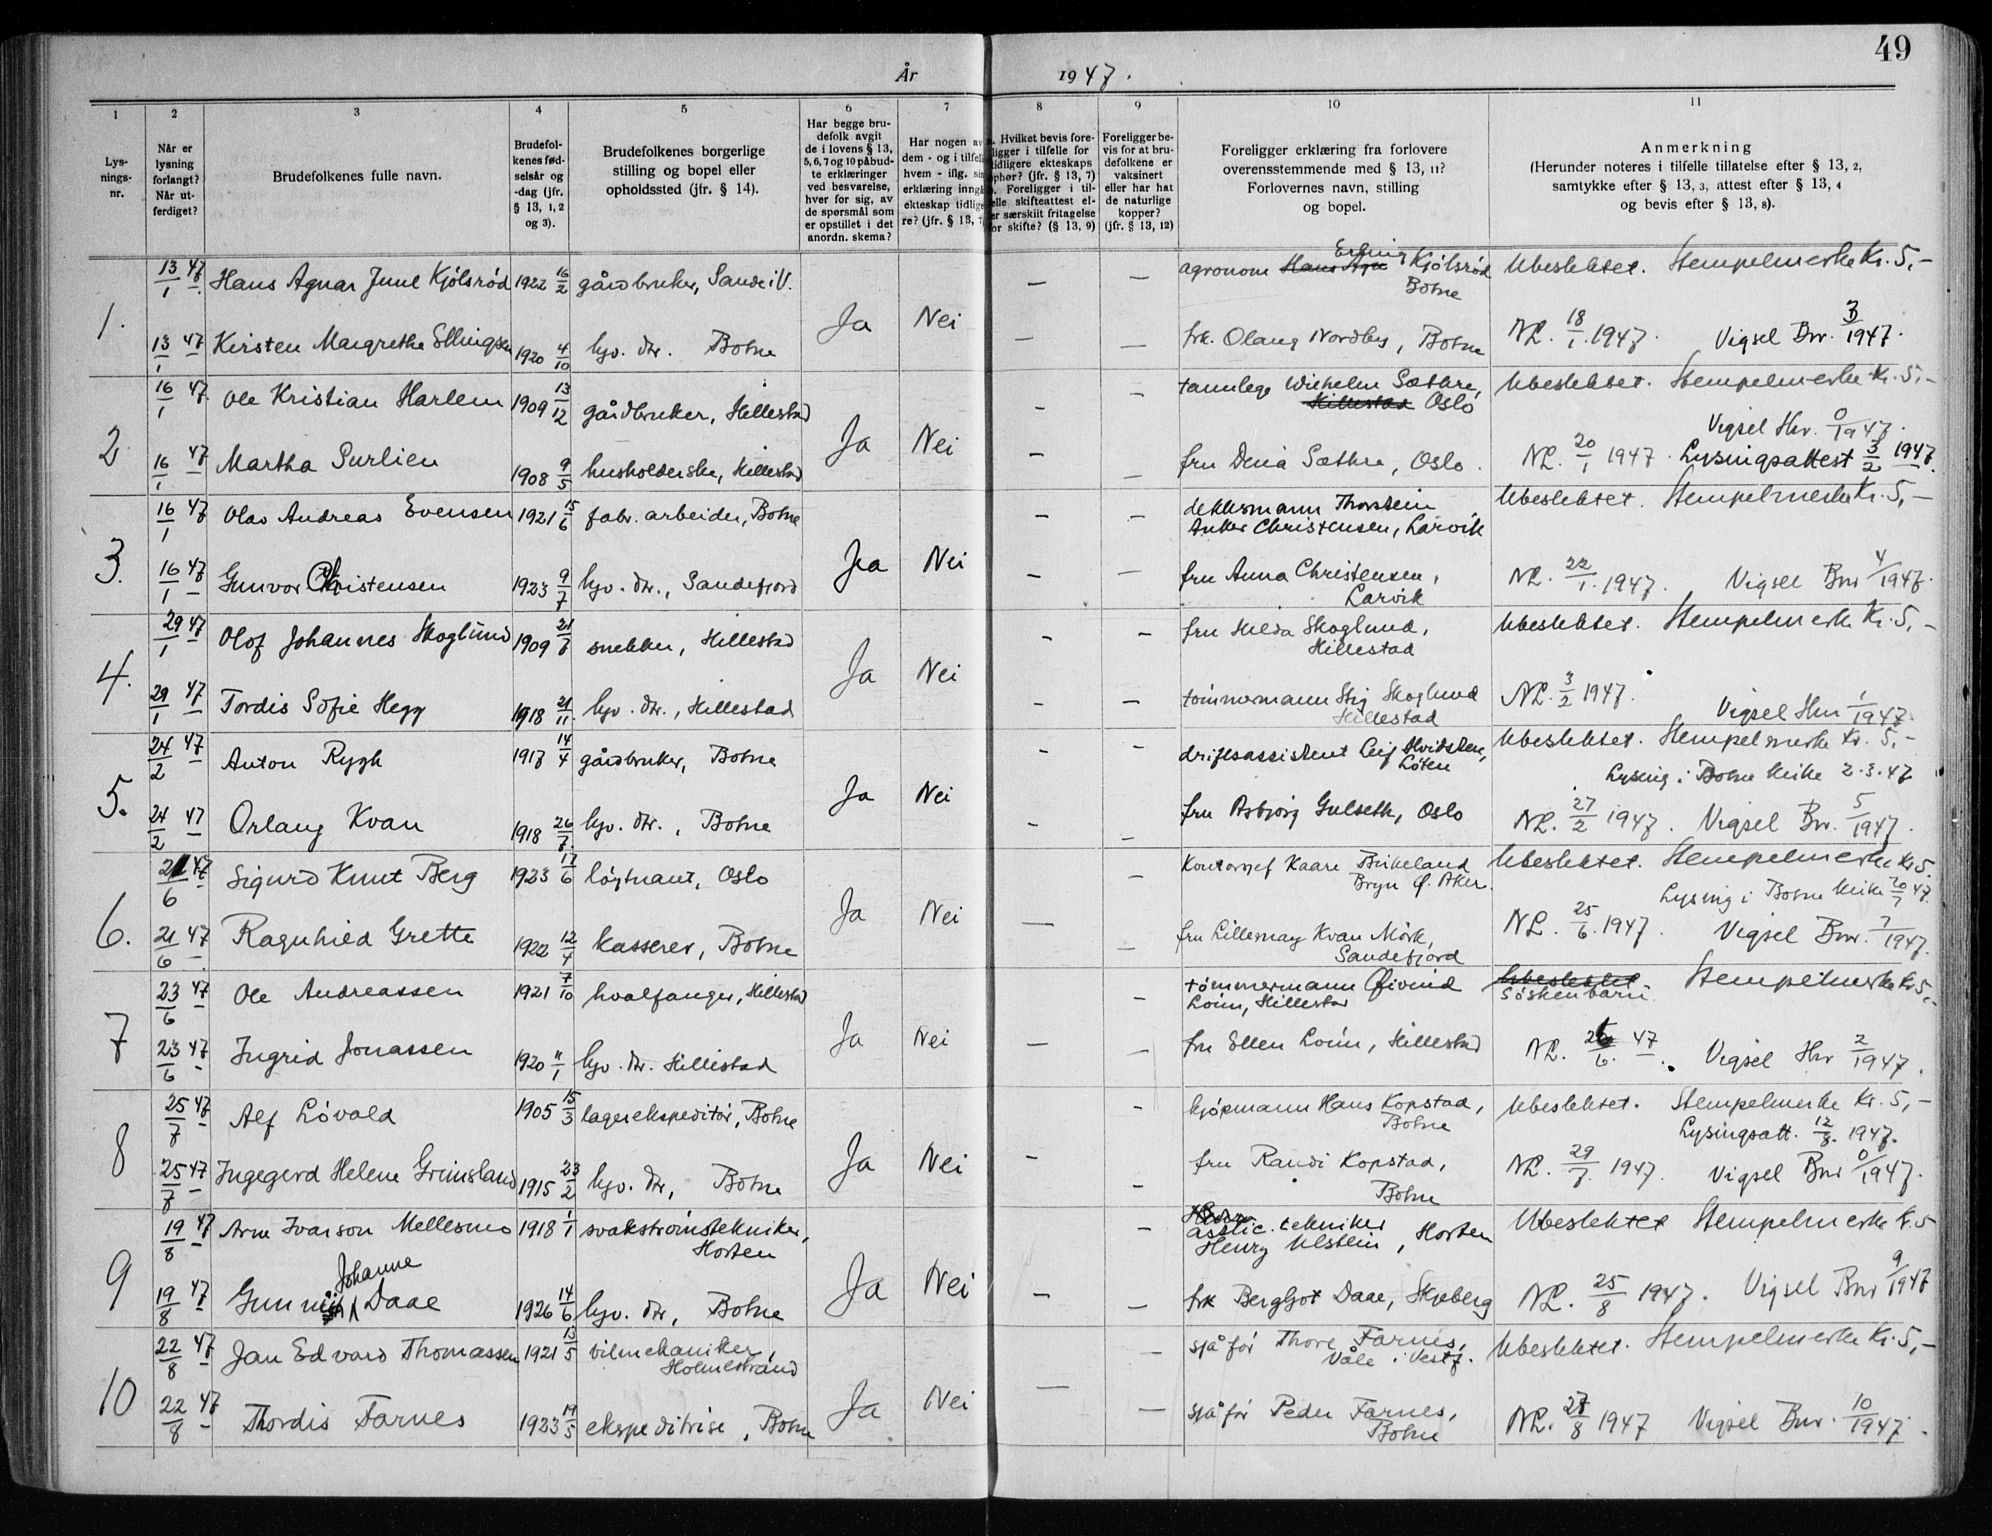 49
År 1947.
1 2 3 4 5 6 7 8 9 10 11
Lys-
nings-
nr.
Når er
lysning
forlangt?
Når ut-
ferdiget?
Brudefolkenes fulle navn.
Brudefol-
kenes fød-
selsår og
-dag (jfr.
§ 13, 1, 2
og 3).
Brudefolkenes borgerlige
stilling og bopel eller
opholdssted (jfr. § 14).
Har begge bru-
defolk avgit
de i lovens § 13,
5, 6, 7 og 10 påbud-
te erklæringer
ved besvarelse,
hver for sig, av
de spørsmål som
er opstillet i det
anordn. skema?
Har nogen av
dem - og i tilfelle
hvem - iflg. sin
erklæring inngå
ekteskap tidlige
re? (jfr. § 13, 7)
Hvilket bevis fore-
ligger i tilfelle for
tidligere ekteskaps
ophør? (jfr. § 13, 7)
Foreligger i til-
elle skifteattest el-
er særskilt fritagelse
or skifte? (§ 13, 9)
Foreligger be-
vis for at bru-
defolkene er
vaksinert
eller har hat
de naturlige
kopper?
(jfr. § 13, 12)
Foreligger erklæring fra forlovere
overensstemmende med § 13, 11?
Forlovernes navn, stilling
og bopel.
Anmerkning
(Herunder noteres i tilfelle tillatelse efter § 13, 2,
samtykke efter § 13, 3, attest efter § 13, 4
og bevis efter § 13, 8).
1.
13/1 47 Hans Agnar Juul Kjølsrød 1922 16/2 gårdbruker, Sande i V. — agronom Hans Agn Erling Kjølsrød Botne Ubeslektet. Stempelmerke Kr. 5,-
Ja Nei
13/1 47 Kirsten Margrethe Ellingsen 1920 4/10 hjv. dtr. Botne — — frk. Olaug Nordby, Botne NL. 18/1. 1947. Vigsel Bnr. 3/1947.
2
16/1 47 Ole Kristian Harlem 1909 13/12 gårdbruker, Hillestad — — tannlege Wilhelm Sæthre, Hillestad Oslo Ubeslektet. Stempelmerke Kr. 5,-
Ja Nei Vigsel Hnr. 0/1947.
16/1 47 Martha Surlien 1908 9/5 husholderske, Hillestad — — fru Dena Sæthre, Oslo. NL. 20/1 1947. Lysingsattest 3/2 1947.
3.
16/1 47 Olav Andreas Evensen 1921 15/6 fabr. arbeider, Botne — — dekksmann Thorstein Anker Christensen, Larvik Ubeslektet. Stempelmerke Kr. 5,-
Ja Nei
16/1 47 Gunvor Christensen 1923 9/7 hjv. dtr., Sandefjord — — fru Anna Christensen, Larvik NL. 22/1. 1947. Vigsel Bnr 4/1947.
4.
29/1 47 Olof Johannes Skoglund 1909 21/7 snekker, Hillestad — — fru Hilda Skoglund, Hillestad Ubeslektet. Stempelmerke Kr. 5,-
Ja Nei
29/1 47 Tordis Sofie Hegg 1918 21/11. hjv. dtr., Hillestad — — tømmermann Stig Skoglund Hillestad NL. 3/2 1947. Vigsel Hnr 1/1947.
5.
24/2 47 Anton Rygh 1917 14/4 gårdbruker, Botne — — driftsassistent Leif Hvidsten, Løten Ubeslektet. Stempelmerke Kr. 5,-
Ja Nei Lysing i Botne kirke 2.3.47
24/2 47 Orlaug Kvan 1918 26/7. hjv. dtr., Botne — — fru Asbjørg Gulseth, Oslo NL. 27/2 1947. Vigsel Bnr. 5/1947.
6.
21/6 47 Sigurd Knut Berg 1923 17/6 løytnant, Oslo — kontorsjef Kaare Birkeland Bryn Ø. Aker. Ubeslektet. Stempelmerke Kr. 5.
Ja Nei — Lysing i Botne kirke 20/7 47.
21/6 47 Ragnhild Grette 1922 12/4 kasserer, Botne — fru Lillemay Kvan Mørk, Sandefjord NL. 25/6. 1947. Vigsel Bnr. 7/1947.
7
23/6 47 Ole Andreassen 1921 7/10 hvalfanger, Hillestad — tømmermann Øivind Loin, Hillestad Ubeslektet Søskenbarn. Stempelmerke Kr 5,-
Ja Nei —
23/6 47 Ingrid Jonassen 1920 11/1 hjv. dtr. Hillestad — fru Ellen Loin, Hillestad NL. 26/6. 47. Vigsel Hnr 2/1947.
8
25/7 47 Alf Løvald 1905 15/3 lagerekspeditør, Botne — kjøpmann Hans Kopstad, Botne Ubeslektet. Stempelmerke Kr. 5,-
Ja Nei — Lysingsatt. 12/8. 1947.
25/7 47 Ingegerd Helene Grimsland 1915 23/2 hjv. dtr, Botne — fru Randi Kopstad, Botne NL. 29/7. 1947. Vigsel Bnr 0/1947.
9
19/8 47 Arne Ivarson Mellesmo 1918 1/1 svakstrømstekniker, Horten — tekniker Henry Ulstein, Horten Ubeslektet Stempelmerke Kr. 5
Ja Nei —
19/8 47 Gunni Johanne Daae 1926 14/6 hjv. dtr, Botne — frk Bergljot Daae, Skjeberg NL. 25/8 1947. Vigsel Bnr 9/1947
10
22/8 47 Jan Edvard Thomassen 1921 13/5 bilmekaniker, Holmestrand — sjåfør Thore Farnes, Våle i Vestf. Ubeslektet. Stempelmerke Kr. 5,-
Ja Nei —
22/8 47 Thordis Farnes 1923 19/5 ekspeditrise, Botne — sjåfør Peder Farnes, Botne NL. 27/8 1947 Vigsel Bnr. 10/1947.